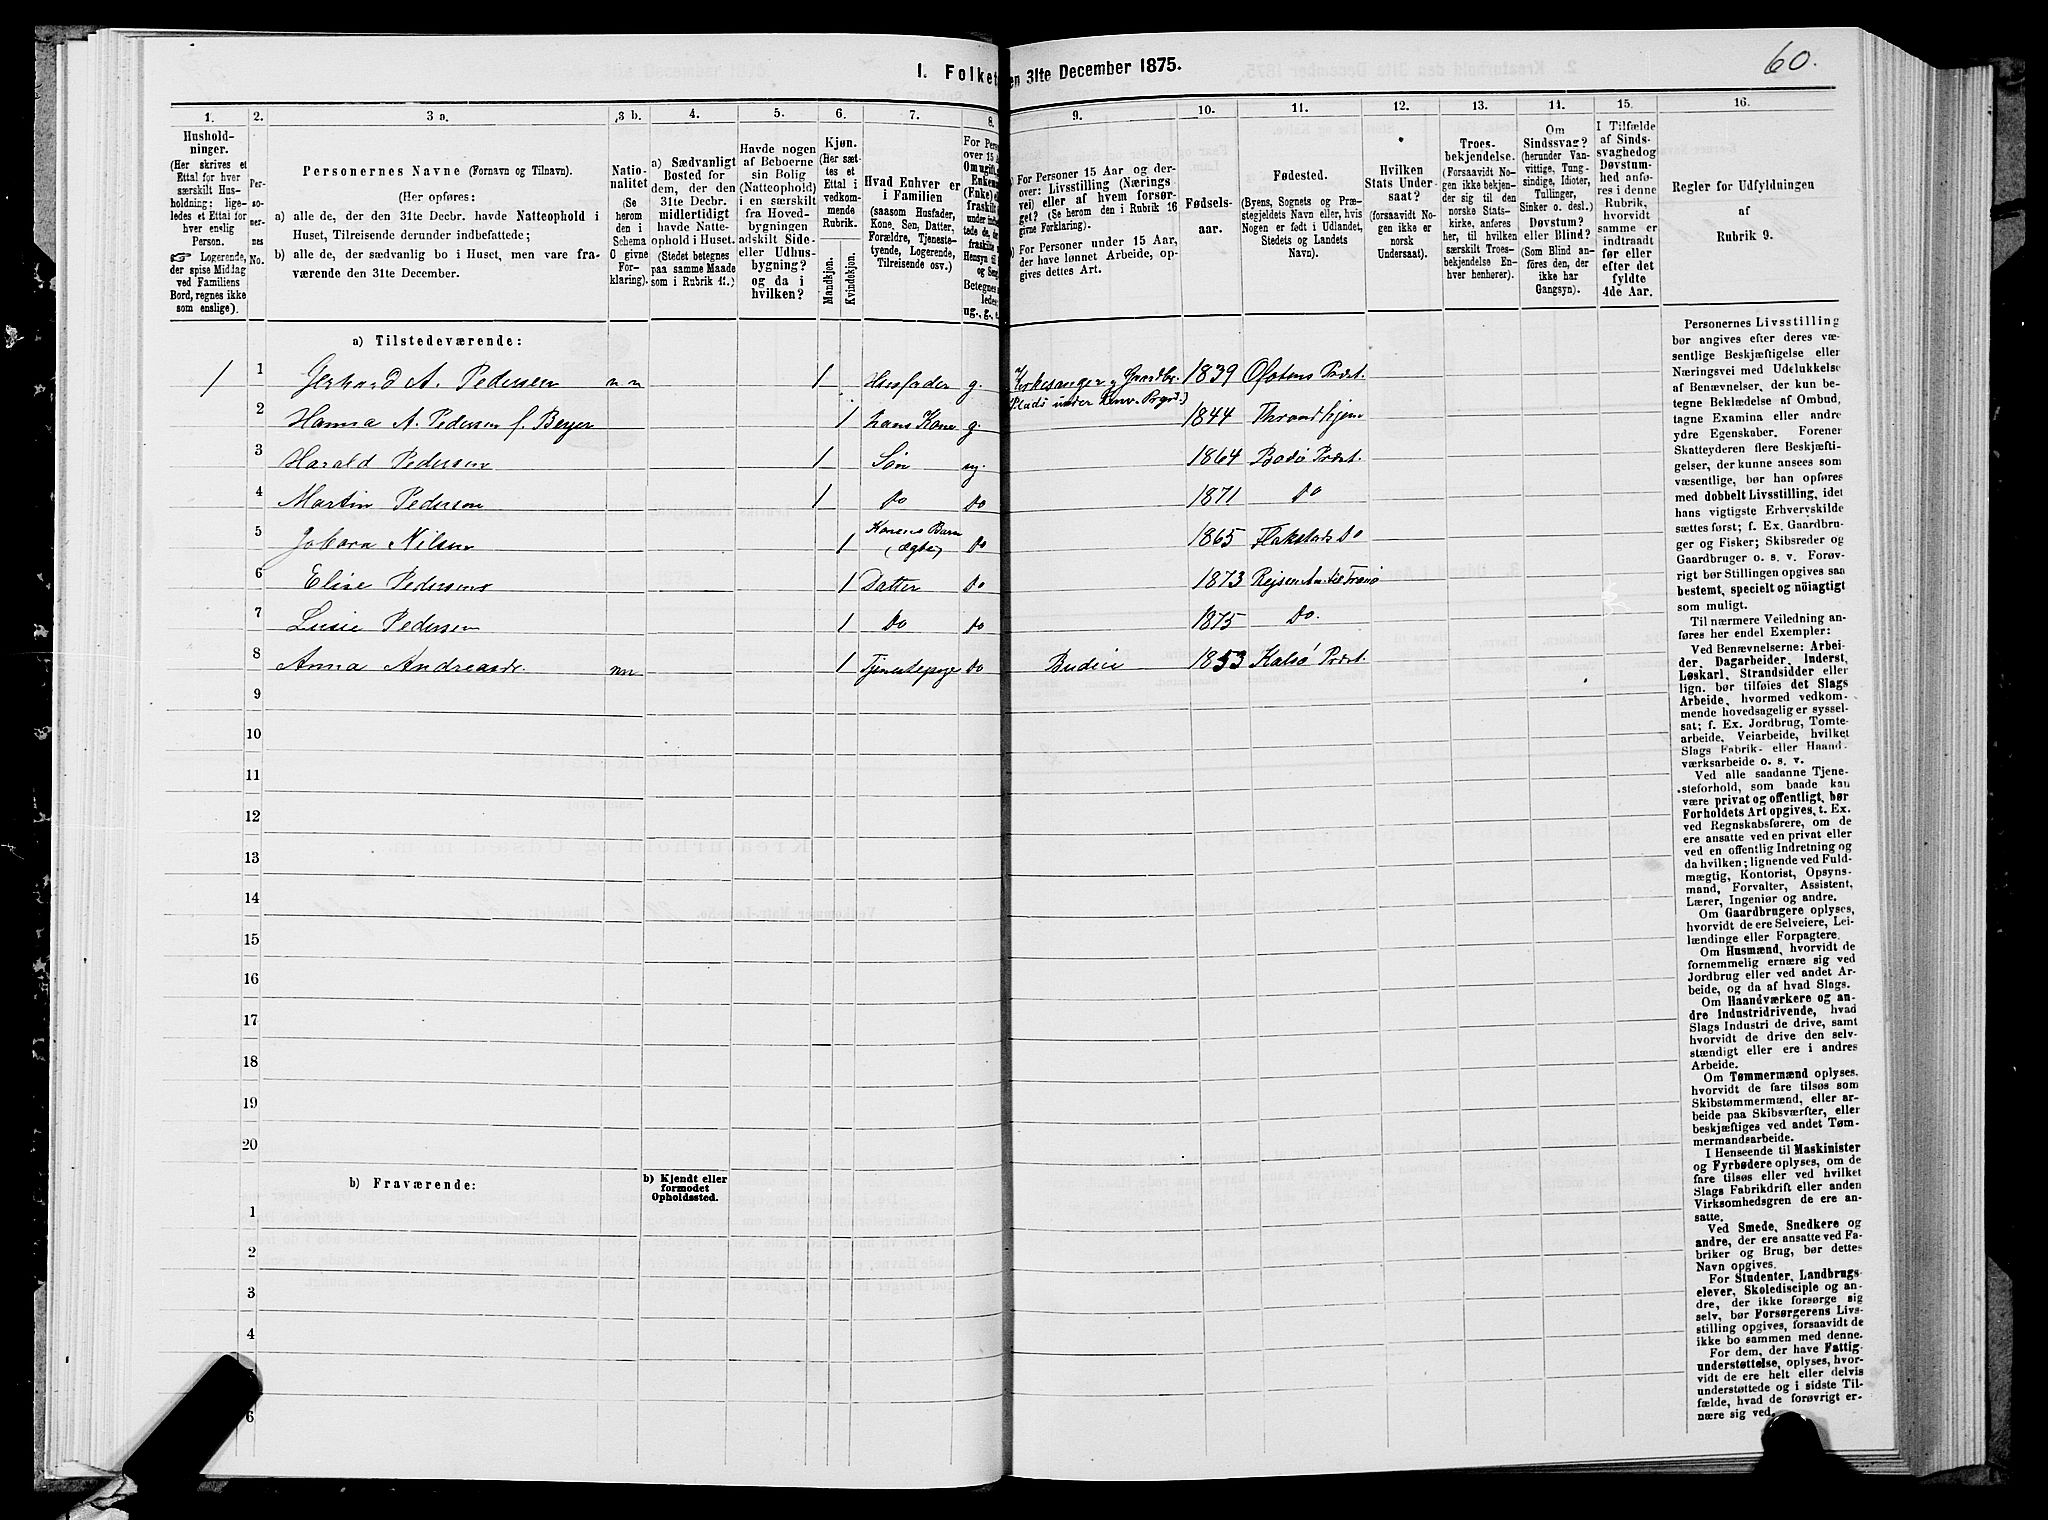 I. Folket
en 31te December 1875.
60.
1.
2.
3 a.
3 b.
4.
5.
6.
7.
8.
9.
10.
11.
12.
13.
14.
15.
16.
Hushold-
ninger.
(Her skrives et
Ettal for hver
særskilt Hus-
holdning; lige-
ledes et Ettal for
hver enslig
Person.
Logerende,
der spise Middag
ved Familiens
Bord, regnes ikke
som enslige).
Per-
so-
ner-
nes
No.
Personernes Navne (Fornavn og Tilnavn).
(Her opføres:
a) alle de, der den 31te Decbr. havde Natteophold i
Huset, Tilreisende derunder indbefattede;
b) alle de, der sædvanlig bo i Huset, men vare fra-
værende den 31te December.
Natio-
nalitet
(Se
herom
den i
Schema
O givne
For-
klaring).
a) Sædvanligt
Bosted for
dem, der den
31te Decbr.
midlertidigt
havde Natte-
ophold i Huset.
(Stedet betegnes
paa samme Maade
som i Rubrik 11.)
Havde nogen
af Beboerne
sin Bolig
(Natteophold)
i en særskilt
fra Hoved-
bygningen
adskilt Side-
eller Udhus-
bygning?
og da i
hvilken?
Kjøn.
(Her sæt-
tes et
Ettal i
vedkom-
mende
Rubrik.
Mandkjøn.
Kvindekjøn.
Hvad Enhver er
i Familien
(saasom Husfader,
Kone, Søn, Datter,
Forældre, Tjeneste-
tyende, Logerende,
Tilreisende osv.)
For Pers
over 15 A
Om ugift,
Enkem
(Enke) e
fraskilt
ug., g., e.
For Personer 15 Aar og der-
over: Livsstilling (Nærings
vei) eller af hvem forsør-
get? (Se herom den i Rubrik 16
givne Forklaring).
b) For Personer under 15 Aar,
der have lønnet Arbeide, op-
gives dettes Art.
Fødsels-
aar.
Fødested.
(Byens, Sognets og Præ-
stegjeldets Navn eller, hvis
Nogen er født i Udlandet,
Stedets og Landets
Navn).
Hvilken
Stats Under-
saat?
(forsaavidt No-
gen ikke er
norsk
Undersaat).
Troes-
bekjendelse.
(Forsaavidt No-
gen ikke bekjen-
der sig til den
norske Stats-
kirke, anføres
her, til hvilken
særskilt Troes-
bekjendelse En-
hver henhører).
Om
Sindssvag?
(herunder Van-
vittige, Tung-
sindige, Idioter,
Tullinger,
Sinker o. desl.)
Døvstum?
eller Blind?
(Som Blind an-
føres den, der
ikke har
Gangsyn).
I Tilfælde
af Sinds-
svaghed og
Døvstum-
hed anfø-
res i denne
Rubrik,
hvorvidt
samme er
indtraadt
før eller
efter det
fyldte
4de Aar.
Regler for Udfyldningen
af
Rubrik 9.
a) Tilstedeværende:
1 1 Gerhard A. Pedersen nn 1 Husfader g. Kirkesanger g Gaardbr. 1839 Ofotens Præst.
(Plads under
2 Hanna A. Pedersen f. Berger 1 hans Kone g. 1844 Throndhjem
3 Harald Pedersen 1 Søn ug. 1864 Bodø Præst.
4 Martin Pedersen 1 Do Do 1871 Do
5 Nilsen 1 Konens Barn (ægte) Do 1865 Flakstads Do
6 Elise Pedersen 1 Datter Do 1873 Rejsen
7 Lusie Pedersen 1 Do Do 1875 Do.
8 Anna Andreasdr. nn 1 Tjenestepige Do Budeie 1853 Kalsø Præst.
9
10
11
12
13
14
15
16
17
18
19
20
b) Fraværende:
b) Kjendt eller
formodet
Opholdssted.
1
2
3
4
6
Personernes Livsstilling
bør angives efter deres væ-
sentlige Beskjæftigelse eller
Næringsvei med Udelukkelse
af Benævnelser, der kun be-
tegne Beklædelse af Ombud,
tagne Examina eller andre
ydre Egenskaber. Forener
Skatteyderen flere Beskjæfti-
gelser, der kunne ansees som
væsentlige, bør han opføres
med dobbelt Livsstilling, idet
hans vigtigste Erhvervskilde
sættes først; f. Ex. Gaardbru-
ger og Fisker; Skibsreder og
Gaardbruger o. s. v. Forøv-
rigt bør Stillingen opgives saa
bestemt, specielt og nöiagtigt
som muligt.
Til nærmere Veiledning an-
føres her endel Exempler:
Ved Benævnelserne: Arbei-
der, Dagarbeider, Inderst,
Løskarl, Strandsidder eller
lign. bør tilføies det Slags
Arbeide, hvormed vedkom-
mende hovedsagelig er syssel-
sat; f. Ex. Jordbrug, Tomte-
arbeide, Veiarbeide, hvilket
Slags Fabrik- eller Haand-
værksarbeide o. s. v.
Ved alle saadanne Tjene-
steforhold, som baade kan
være privat og offentligt, bør
Forholdets Art opgives, t. Ex.
ved Regnskabsførere, om de
ere ansatte ved en privat eller
ved en offentlig Indretning og
da hvilken; lignende ved Fuld-
mægtig, Kontorist, Opsyns-
mand, Forvalter, Assistent,
Lærer, Ingeniør og andre.
Om Gaardbrugere oplyses,
hvorvidt de ere Selveiere, Lei-
lændinge eller Forpagtere.
Om Husmænd, hvorvidt de
fornemmelig ernære sig ved
Jordbrug eller ved andet Ar-
beide, og da af hvad Slags.
Om Haandværkere og an-
dre Industridrivende, hvad
Slags Industri de drive, samt
hvorvidt de drive den selv-
stændigt eller ere i andres
Arbeide.
Om Tømmermænd oplyses,
hvorvidt de fare tilsøs som
Skibstømmermænd, eller ar-
beide paa Skibsværfter, eller
beskjæftiges ved andet Tøm-
mermandsarbeide.
I Henseende til Maskinister
og Fyrbødere oplyses, om de
fare tilsøs eller ved hvilket
Slags Fabrikdrift eller anden
Virksomhedsgren de ere an-
satte.
Ved Smede, Snedkere og
andre, der ere ansatte ved Fa-
briker og Brug, bør dettes
Navn opgives.
For Studenter, Landbrugs-
elever, Skoledisciple og an-
dre, der ikke forsørge sig
selv, bør Forsørgerens Livs-
stilling opgives, forsaavidt de
ikke bo sammen med denne.
For dem, der have Fattig-
understøttelse, oplyses, hvor-
vidt de ere helt eller delvis
understøttede og i sidste Til-
fælde, hvad de forøvrigt er-
nære sig ved.